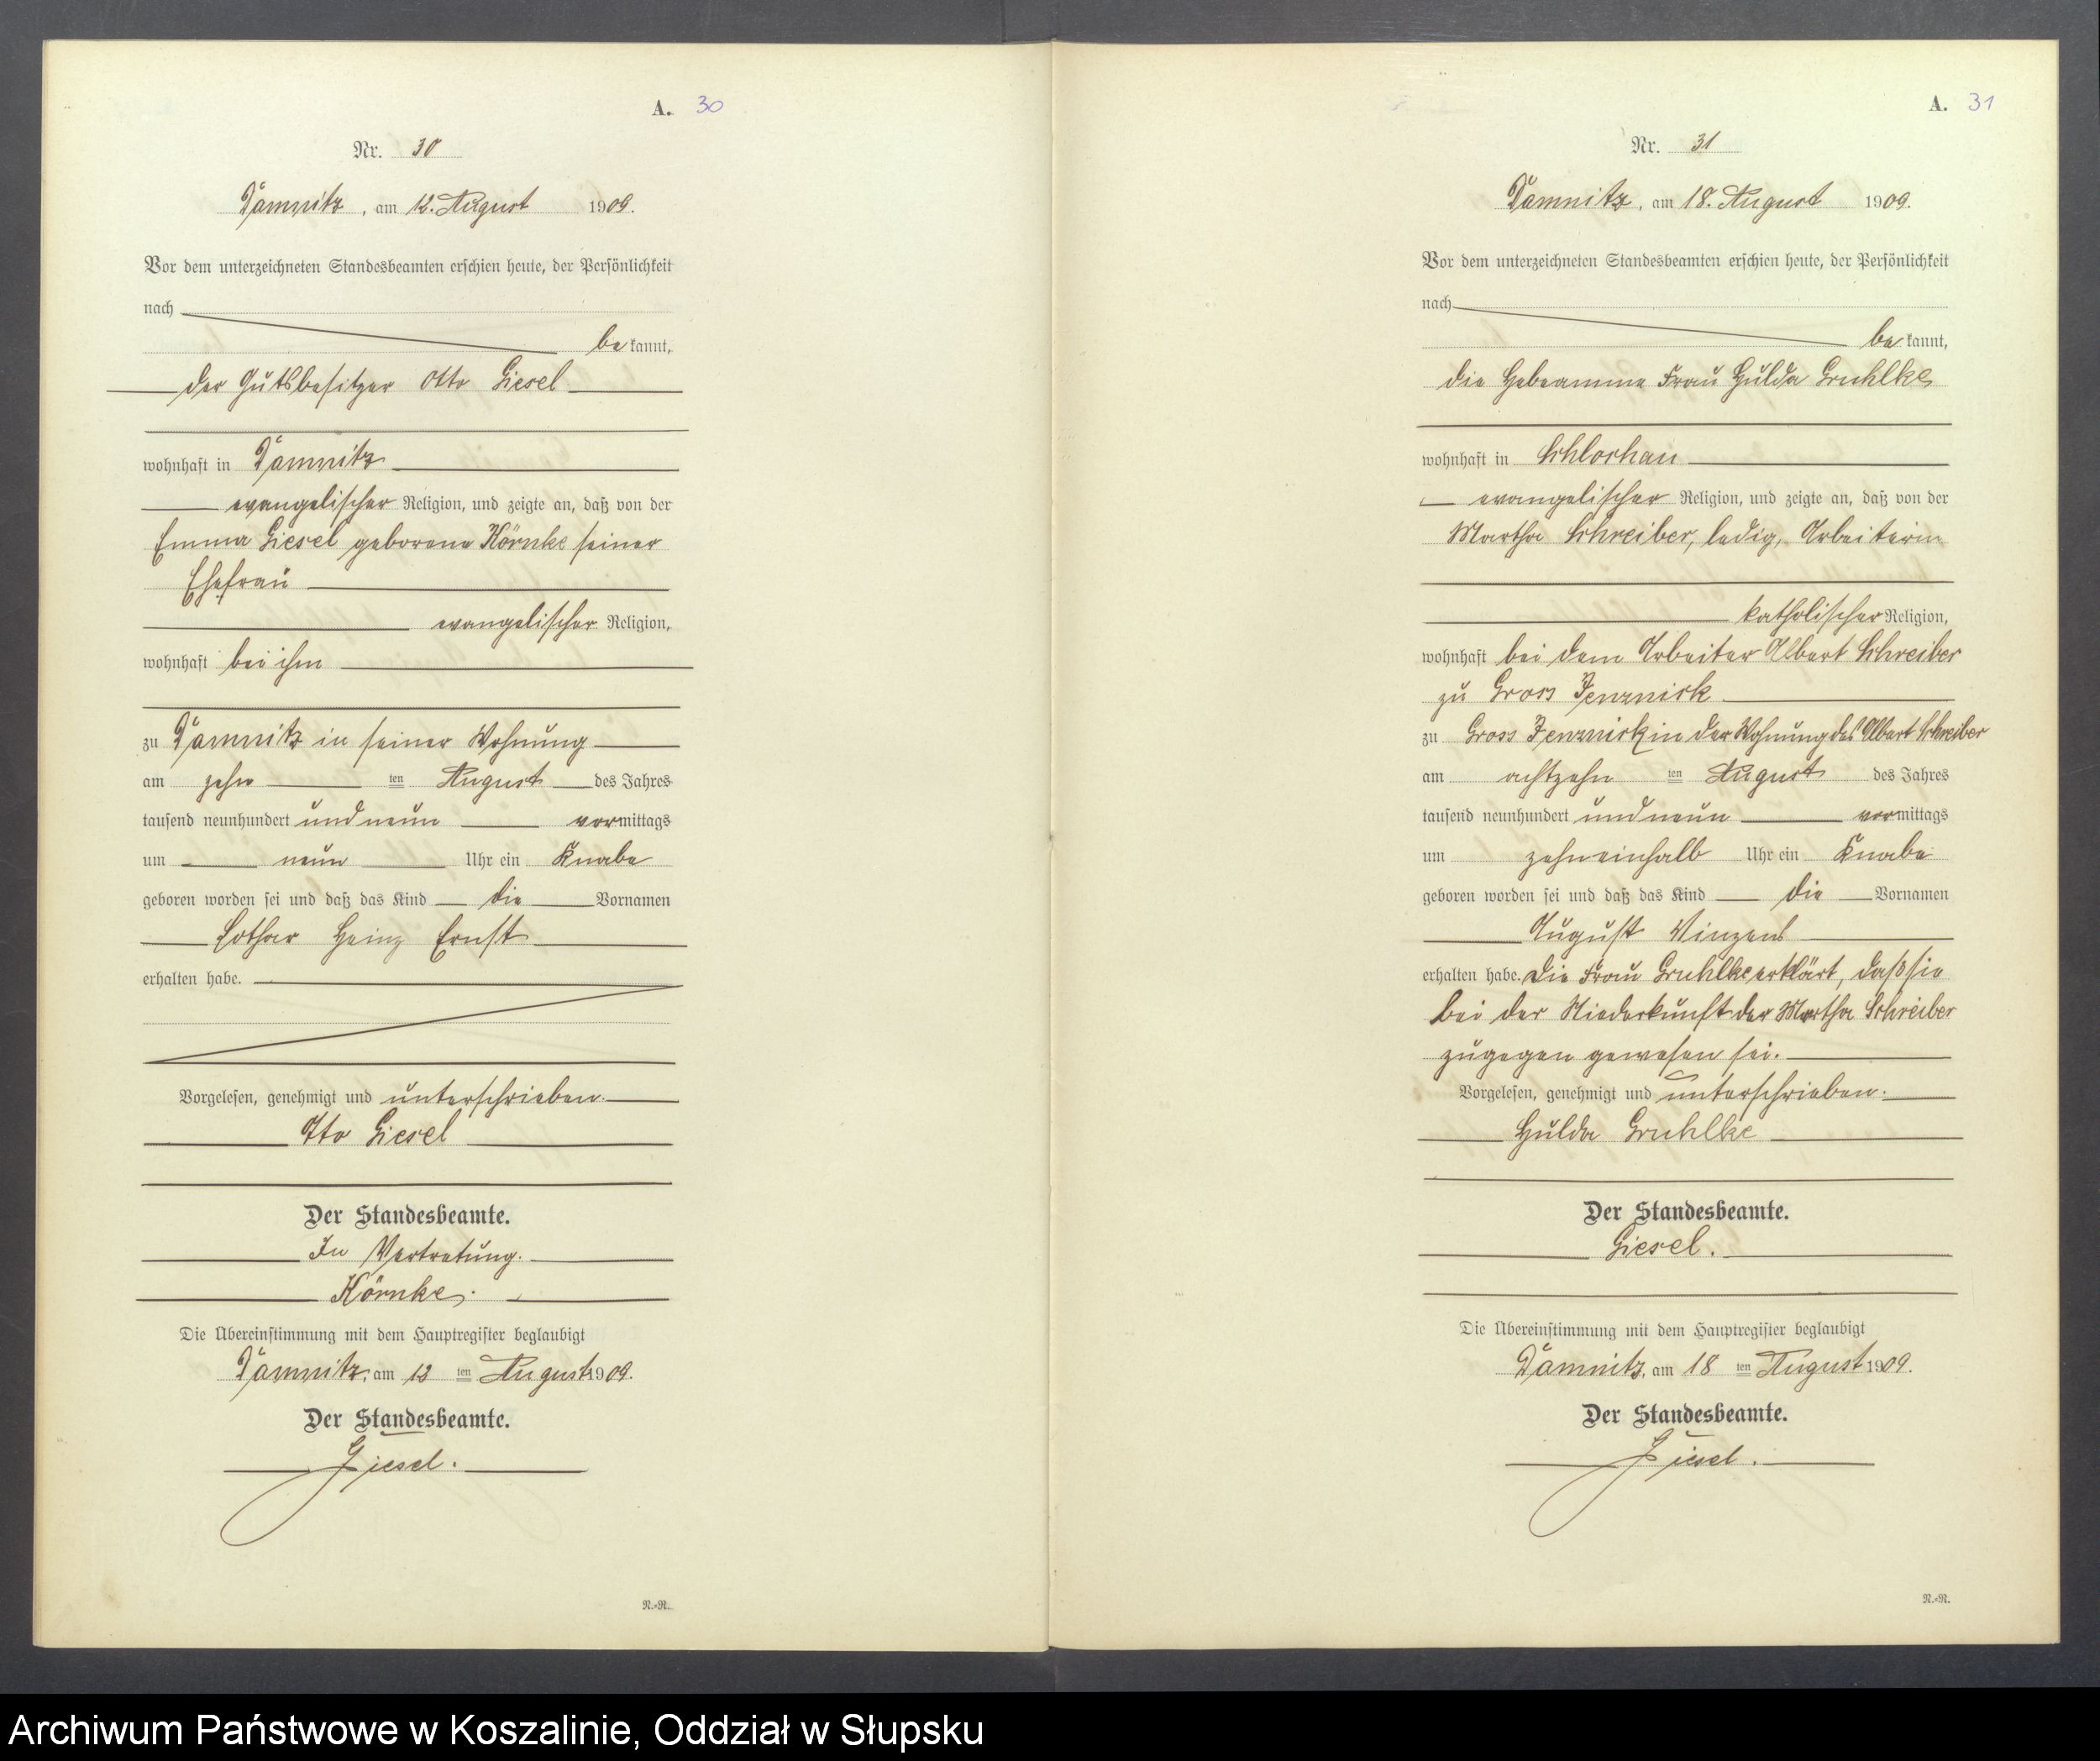 A. 30
Nr. 30
Damnitz, am 12. August 1909.
Vor dem unterzeichneten Standesbeamten erschien heute, der Persönlichkeit
nach
bekannt,
der Gutsbesitzer Otto Giesel
wohnhaft in Damnitz
evangelischer Religion, und zeigte an, daß von der
Emma Giesel geborene Körnke seiner
Ehefrau
evangelischer Religion,
wohnhaft bei ihm
zu Damnitz in seiner Wohnung
am zehn ten August des Jahres
tausend neunhundert und neun vormittags
um neun Uhr ein Knabe
geboren worden sei und daß das Kind die Vornamen
Lothar Heinz Ernst
erhalten habe.
Vorgelesen, genehmigt und unterschrieben.
Otto Giesel
Der Standesbeamte.
In Vertretung.
Körnke.
Die Übereinstimmung mit dem Hauptregister beglaubigt
Damnitz, am 12 ten August 1909.
Der Standesbeamte.
Giesel.
N.=R.
A. 31
Nr. 31
Damnitz, am 18. August 1909.
Vor dem unterzeichneten Standesbeamten erschien heute, der Persönlichkeit
nach
bekannt,
die Hebeamme Frau Hulda Gruhlke
wohnhaft in Schlochau
evangelischer Religion, und zeigte an, daß von der
Martha Schreiber, ledig, Arbeiterin
katholischer Religion,
wohnhaft bei dem Arbeiter Albert Schreiber
zu Gross Jenznick
zu Gross Jenznick in der Wohnung des Albert Schreiber
am achtzehn ten August des Jahres
tausend neunhundert und neun vormittags
um zehneinhalb Uhr ein Knabe
geboren worden sei und daß das Kind die Vornamen
August Vinzens
erhalten habe. Die Frau Gruhlke erklärt, daß sie
bei der Niederkunft der Martha Schreiber
zugegen gewesen sei.
Vorgelesen, genehmigt und unterschrieben.
Hulda Gruhlke
Der Standesbeamte.
Giesel.
Die Übereinstimmung mit dem Hauptregister beglaubigt
Damnitz, am 18 ten August 1909.
Der Standesbeamte.
Giesel.
N.=R.
Archiwum Państwowe w Koszalinie, Oddział w Słupsku